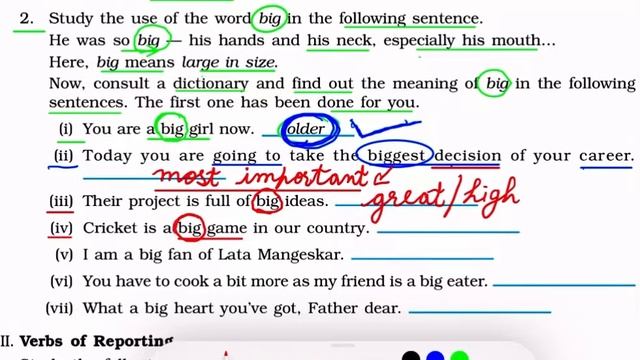 2. Study the use of the word big in the following sentence.
He was so big — his hands and his neck, especially his mouth...
Here, big means large in size.
Now, consult a dictionary and find out the meaning of big in the following
sentences. The first one has been done for you.
(i) You are a big girl now. older
(ii) Today you are going to take the biggest decision of your career.
most important
(iii) Their project is full of big ideas. great/high
(iv) Cricket is a big game in our country.
(v) I am a big fan of Lata Mangeskar.
(vi) You have to cook a bit more as my friend is a big eater.
(vii) What a big heart you've got, Father dear.
II. Verbs of Reporting